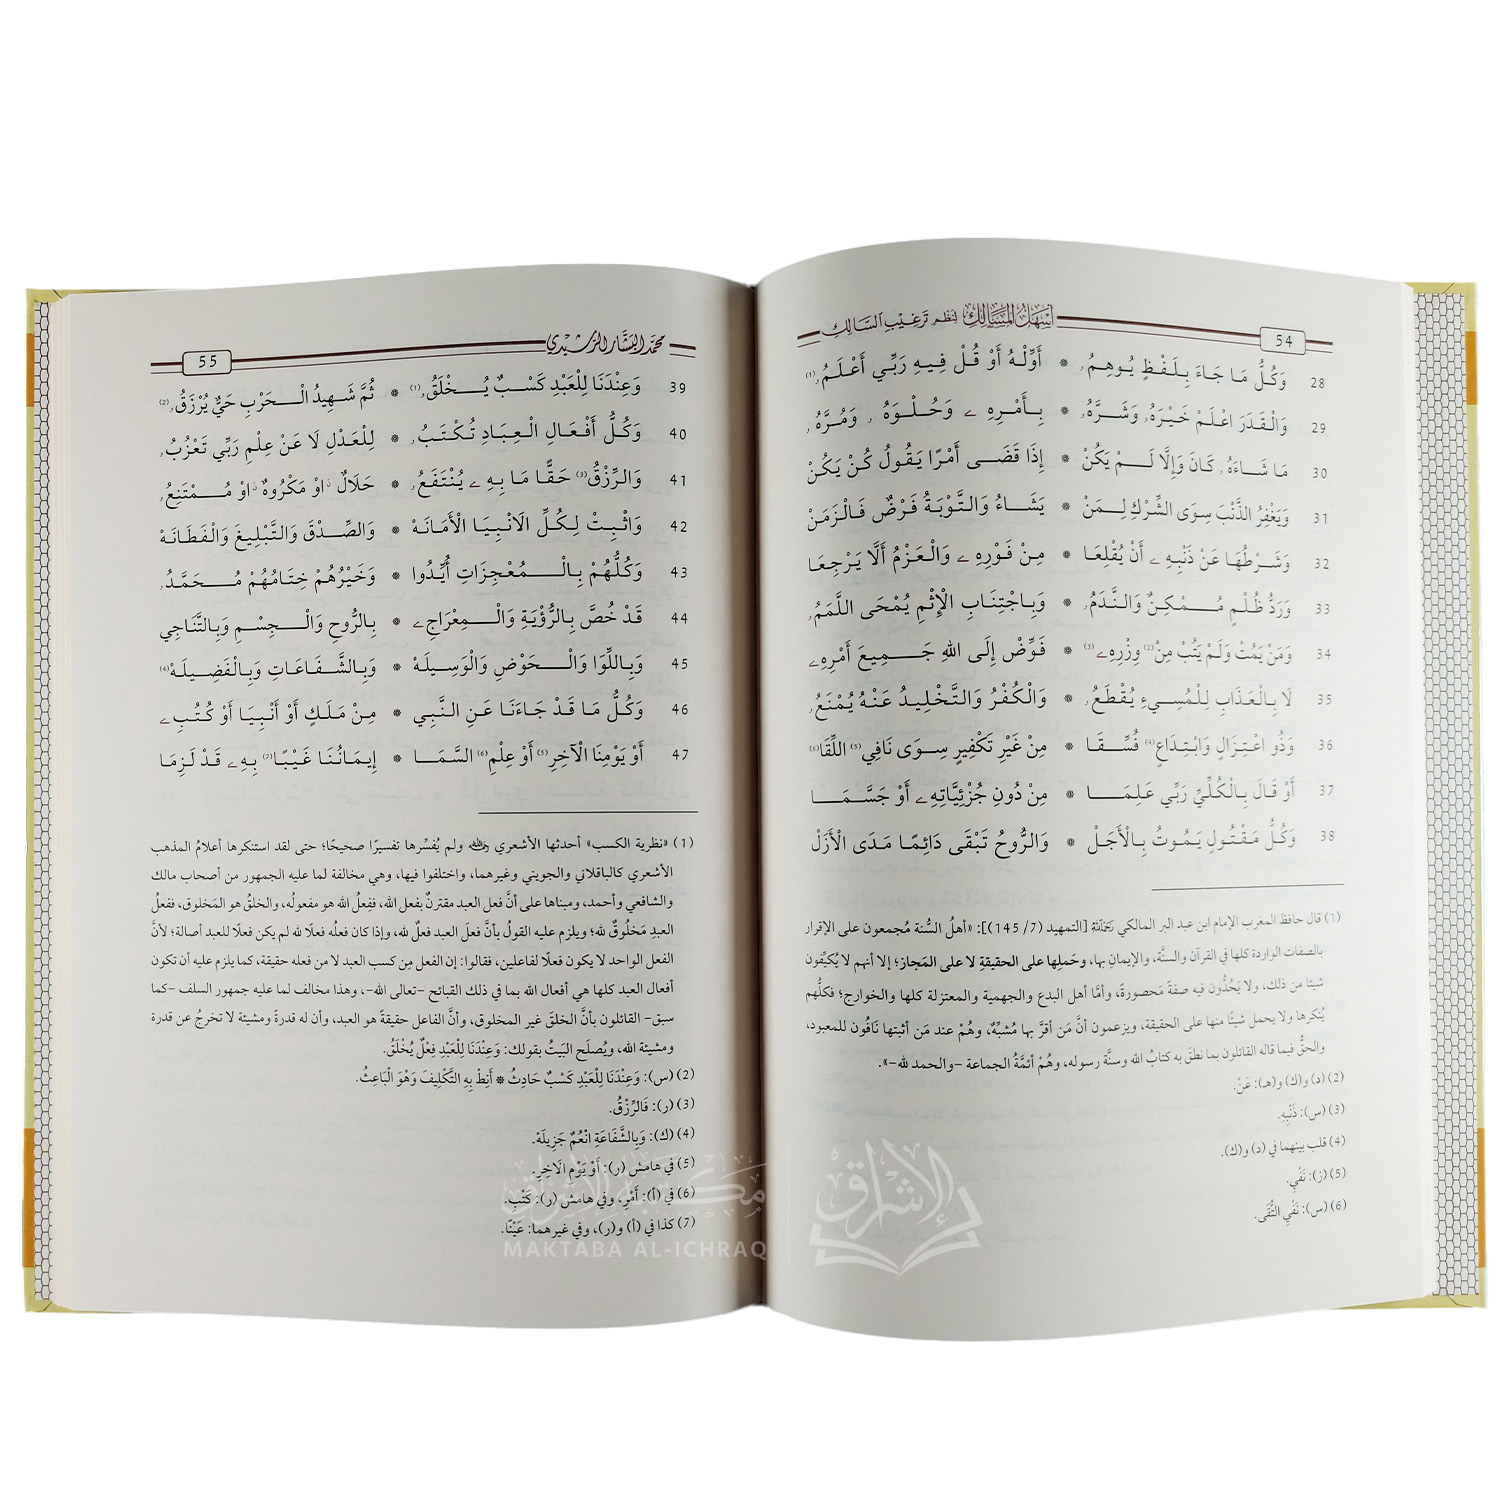 54
أسهل المسالك لنظم ترغيب السالك
28 وَكُلُّ مَا جَاءَ بِلَفْظٍ يُوهِمُ * أَوِّلْهُ أَوْ قُلْ فِيهِ رَبِّي أَعْلَمُ (1)
29 وَالْقَدَرَ اعْلَمْ خَيْرَهُ وَشَرَّهُ * بِأَمْرِهِ وَحُلْوَهُ وَمُرَّهُ
30 مَا شَاءَهُ كَانَ وَإِلَّا لَمْ يَكُنْ * إِذَا قَضَى أَمْرًا يَقُولُ كُنْ يَكُنْ
31 وَيَغْفِرُ الذَّنْبَ سِوَى الشِّرْكِ لِمَنْ * يَشَاءُ وَالتَّوْبَةُ فَرْضٌ فَالْزَمَنْ
32 وَشَرْطُهَا عَنْ ذَنْبِهِ أَنْ يُقْلِعَا * مِنْ فَوْرِهِ وَالْعَزْمُ أَلَّا يَرْجِعَا
33 وَرَدُّ ظُلْمٍ مُمْكِنٌ وَالنَّدَمُ * وَبِاجْتِنَابِ الْإِثْمِ يُمْحَى اللَّمَمُ
34 وَمَنْ يَمُتْ وَلَمْ يَتُبْ مِنْ (2) وِزْرِهِ (3) * فَوِّضْ إِلَى اللهِ جَمِيعَ أَمْرِهِ
35 لَا بِالْعَذَابِ لِلْمُسِيءِ يُقْطَعُ * وَالْكُفْرُ وَالتَّخْلِيدُ عَنْهُ يُمْنَعُ
36 وَذُو اعْتِزَالٍ وَابْتِدَاعٍ (4) فُسِّقَا * مِنْ غَيْرِ تَكْفِيرٍ سِوَى نَافِي (5) اللِّقَا (6)
37 أَوْ قَالَ بِالْكُلِّيِّ رَبِّي عَلِمَا * مِنْ دُونِ جُزْئِيَّاتِهِ أَوْ جَسَّمَا
38 وَكُلُّ مَقْتُولٍ يَمُوتُ بِالْأَجَلْ * وَالرُّوحُ تَبْقَى دَائِمًا مَدَى الْأَزَلْ
(1) قال حافظ المغرب الإمام ابن عبد البر المالكي رَحِمَهُ اللهُ [التمهيد (7/ 145)]: «أهلُ السُّنة مُجمعون على الإقرار
بالصفات الواردة كلها في القرآن والسنَّة، والإيمانِ بها، وحَملِها على الحقيقةِ لا على المَجاز؛ إلا أنهم لا يُكيِّفون
شيئا من ذلك، ولا يَحُدُّون فيه صفةً مَحصورةً، وأمَّا أهل البدع والجهمية والمعتزلة كلها والخوارج؛ فكلُّهم
يُنكرها ولا يحمل شيئًا منها على الحقيقة، ويزعمون أنَّ مَن أقرَّ بها مُشبِّهٌ، وهُمْ عند مَن أثبتها نَافُون للمعبود،
والحقُّ فيما قاله القائلون بما نطق به كتابُ الله وسنَّة رسوله، وهُمْ أئمَّةُ الجماعة -والحمد لله-».
(2) (د) و(ك) و(هـ): عَنْ.
(3) (س): ذَنْبِهِ.
(4) قلب بينهما في (د) و(ك).
(5) (ز): نَفْيِ.
(6) (س): نَفْيِ التُّقَى.
55
محمد البشار الرشيدي
39 وَعِنْدَنَا لِلْعَبْدِ كَسْبٌ يُخْلَقُ (1) * ثُمَّ شَهِيدُ الْحَرْبِ حَيٌّ يُرْزَقُ (2)
40 وَكُلُّ أَفْعَالِ الْعِبَادِ تُكْتَبُ * لِلْعَدْلِ لَا عَنْ عِلْمِ رَبِّي تَعْزُبُ
41 وَالرِّزْقُ (3) حَقًّا مَا بِهِ يُنْتَفَعُ * حَلَالٌ اوْ مَكْرُوهٌ اوْ مُمْتَنِعُ
42 وَاثْبِتْ لِكُلِّ الَانْبِيَا الْأَمَانَهْ * وَالصِّدْقَ وَالتَّبْلِيغَ وَالْفَطَانَهْ
43 وَكُلُّهُمْ بِالْمُعْجِزَاتِ أُيِّدُوا * وَخَيْرُهُمْ خِتَامُهُمْ مُحَمَّدُ
44 قَدْ خُصَّ بِالرُّؤْيَةِ وَالْمِعْرَاجِ * بِالرُّوحِ وَالْجِسْمِ وَبِالتَّنَاجِي
45 وَبِاللِّوَا وَالْحَوْضِ وَالْوَسِيلَهْ * وَبِالشَّفَاعَاتِ وَبِالْفَضِيلَهْ (4)
46 وَكُلُّ مَا قَدْ جَاءَنَا عَنِ النَّبِي * مِنْ مَلَكٍ أَوْ أَنْبِيَا أَوْ كُتُبِ
47 أَوْ يَوْمِنَا الْآخِرِ (5) أَوْ عِلْمِ (6) السَّمَا * إِيمَانُنَا غَيْبًا (7) بِهِ قَدْ لَزِمَا
(1) «نظرية الكسب» أحدثها الأشعري رَحِمَهُ اللهُ ولم يُفسِّرها تفسيرًا صحيحًا؛ حتى لقد استنكرها أعلامُ المذهب
الأشعري كالباقلاني والجويني وغيرهما، واختلفوا فيها، وهي مخالفة لما عليه الجمهور من أصحاب مالك
والشافعي وأحمد، ومبناها على أنَّ فعل العبد مقترنٌ بفعل الله، ففِعلُ الله هو مفعولُه، والخلقُ هو المَخلوق، ففعلُ
العبدِ مَخلُوقٌ لله؛ ويلزم عليه القولُ بأنَّ فعلَ العبد فعلٌ لله، وإذا كان فعلُه فعلًا لله لم يكن فعلًا للعبد أصالة؛ لأنَّ
الفعل الواحد لا يكون فعلًا لفاعلين، فقالوا: إن الفعل مِن كسب العبد لا من فعله حقيقة، كما يلزم عليه أن تكون
أفعال العبد كلها هي أفعال الله بما في ذلك القبائح -تعالى الله-، وهذا مخالف لما عليه جمهور السلف -كما
سبق- القائلون بأنَّ الخلقَ غير المخلوق، وأنَّ الفاعل حقيقةً هو العبد، وأن له قدرةً ومشيئة لا تخرجُ عن قدرة
ومشيئة الله، ويُصلَح البَيتُ بقولك: وَعِنْدَنَا لِلْعَبْدِ فِعْلٌ يُخْلَقُ.
(2) (س): وَعِنْدَنَا لِلْعَبْدِ كَسْبٌ حَادِثُ * أَنِطْ بِهِ التَّكْلِيفَ وَهْوَ الْبَاعِثُ.
(3) (ر): فَالرِّزْقُ.
(4) (ك): وَبِالشَّفَاعَةِ انْعُمٌ جَزِيلَهْ.
(5) في هامش (ر): أَوْ يَوْمِ الَاخِرِ.
(6) في (أ): أَمْرِ، وفي هامش (ر): كُتْبِ.
(7) كذا في (أ) و(ر)، وفي غيرهما: عَيْنًا.
مكتبة الإشراق
MAKTABA AL-ICHRAQ
الإشراق